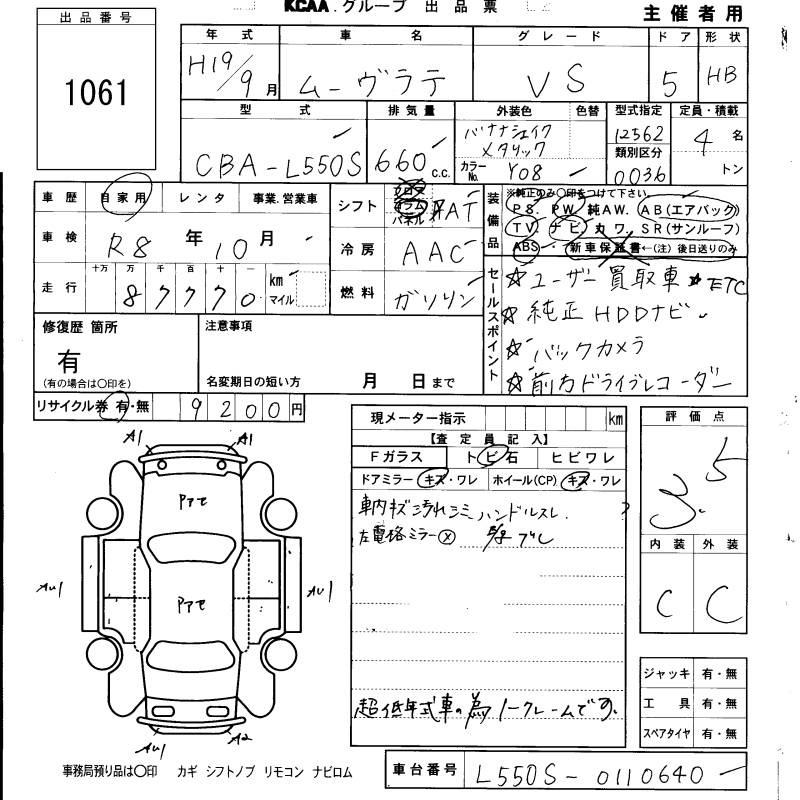 KCAA.グループ 出品票
主催者用
出品番号
1061
年式 車名 グレード ドア 形状
H19/9月 ムーヴラテ VS 5 HB
型式 排気量 外装色 色替 型式指定 定員・積載
CBA-L550S 660c.c. バナナシェイクメタリック 12562 4名
カラーNo. Y08 類別区分 0036 トン
車歴 自家用 レンタ 事業.営業車
シフト フロア コラム パネル FAT
車検 R8年10月
冷房 AAC
走行 十万 万 千 百 十 一
87770 km マイル
燃料 ガソリン
装備品 ※純正のみ○印をつけて下さい
PS. PW. 純AW. AB(エアバック)
TV. ナビ カワ. SR(サンルーフ)
ABS・新車保証書←(注)後日送りのみ
セールスポイント
☆ユーザー買取車 ☆ETC
☆純正HDDナビ
☆バックカメラ
☆前方ドライブレコーダー
修復歴 箇所
有
(有の場合は○印を)
注意事項
名変期日の短い方 月 日まで
リサイクル券 有・無 9200円
現メーター指示 km
【査定員記入】
Fガラス トビ石 ヒビワレ
ドアミラー キズ・ワレ ホイール(CP) キズ・ワレ
車内キズ汚れシミ ハンドルスレ.
左電格ミラーⓧ
超低年式車の為ノークレームです.
評価点
3.5
内装 外装
C C
ジャッキ 有・無
工具 有・無
スペアタイヤ 有・無
A1 A1
Pアセ
AU1 AU1
Pアセ
AU1 A2
事務局預り品は○印 カギ シフトノブ リモコン ナビロム
車台番号 L550S-0110640